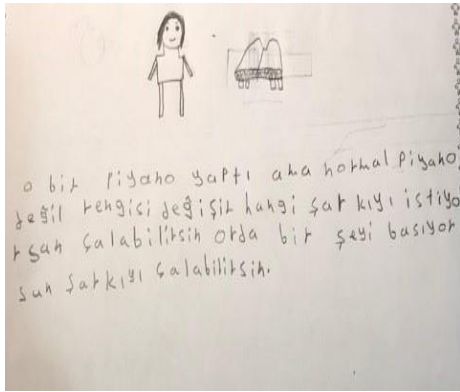 o bir piyano yaptı ama normal piyano
değil rengisi değişir hangi şarkıyı istiyo
rsan çalabilirsin orda bir şeyi basıyor
sun şarkıyı çalabilirsin.